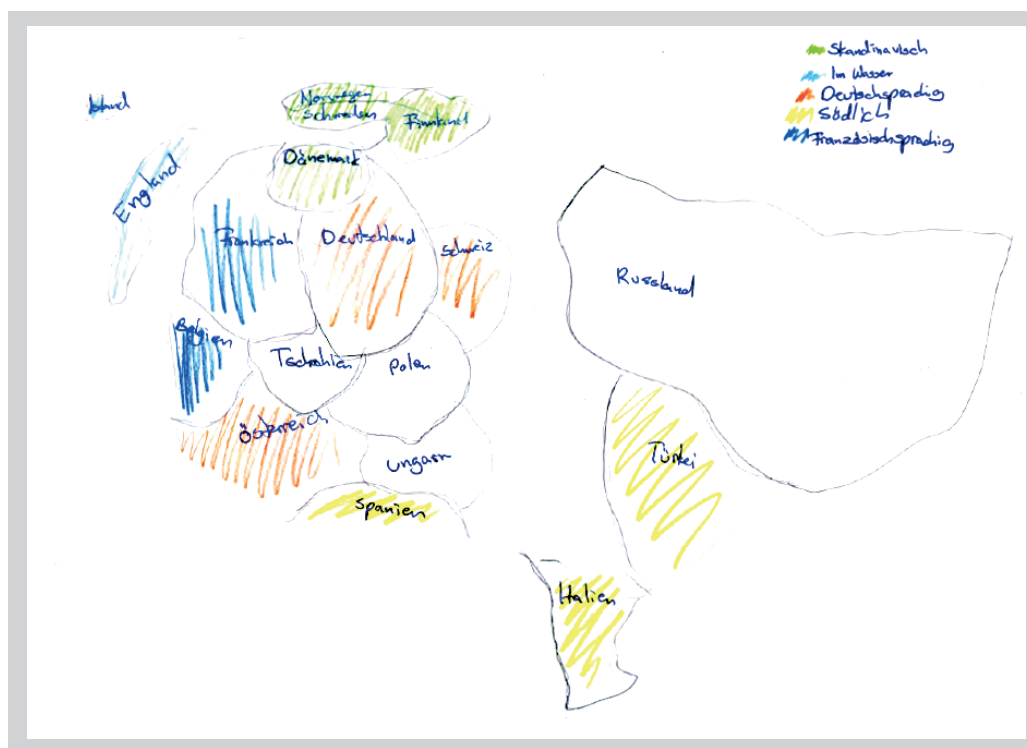 Skandinavisch
Im Wasser
Deutschsprachig
Südlich
Französischsprachig
Island
Norwegen
Schweden
Finnland
Dänemark
England
Frankreich
Deutschland
Schweiz
Russland
Belgien
Tschechien
Polen
Österreich
Ungarn
Türkei
Spanien
Italien